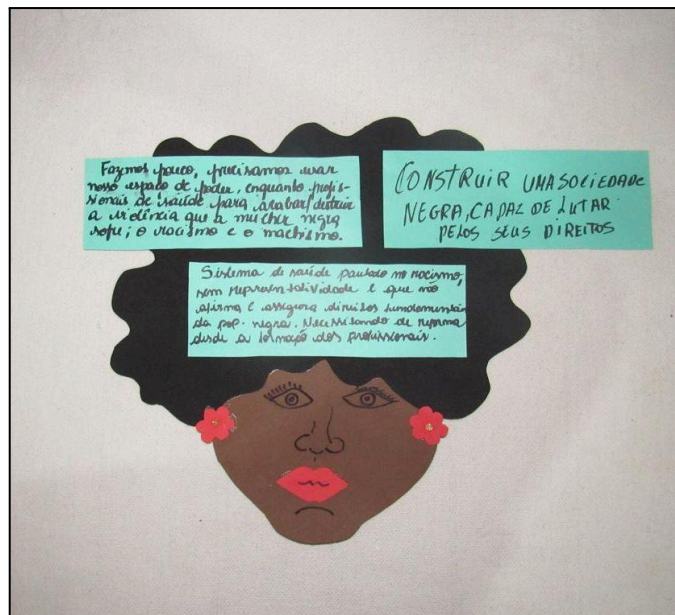 Fazemos pouco, precisamos usar
nosso espaço de poder, enquanto profis-
sionais de saúde para acabar/destruir
a violência que a mulher negra
sofre; o racismo e o machismo.
CONSTRUIR UMA SOCIEDADE
NEGRA, CAPAZ DE LUTAR
PELOS SEUS DIREITOS
Sistema de saúde pautado no racismo,
sem representatividade e que não
afirma e assegura direitos fundamentais
da pop. negra. Necessitando de reforma
desde a formação dos profissionais.